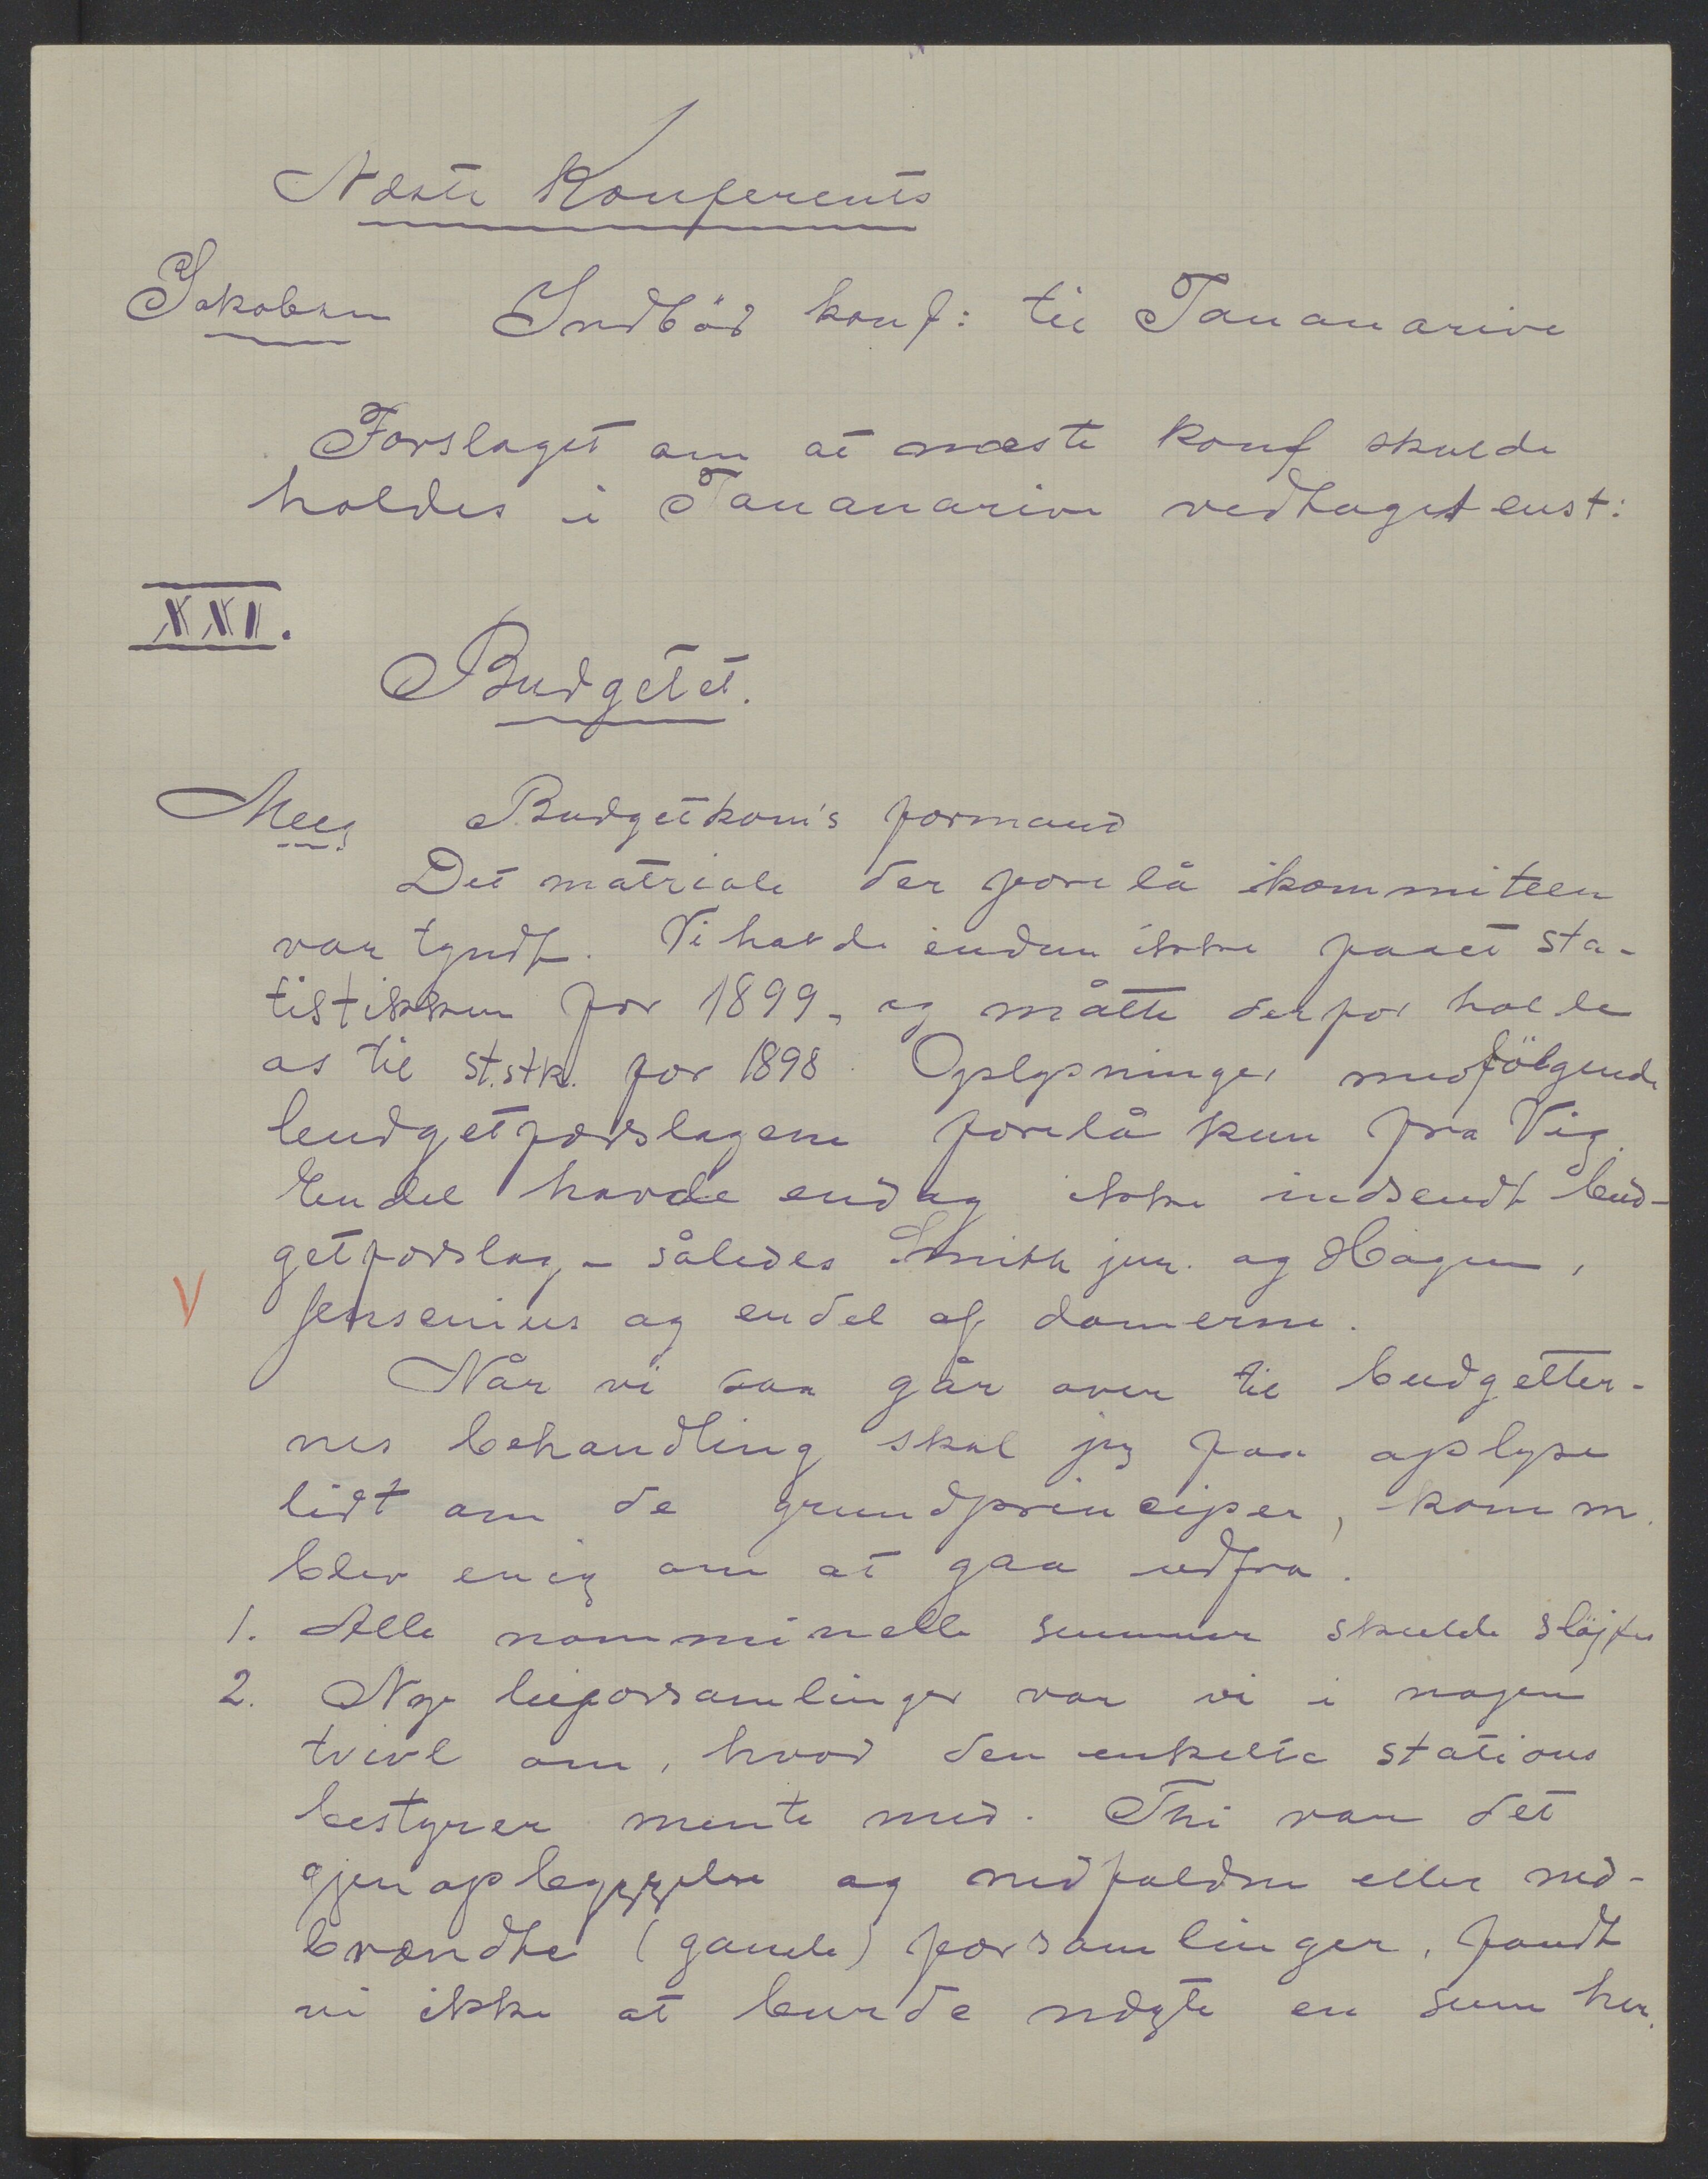 Næste Konferents
Jakobsen Indbød konf: til Tananarive
Forslaget om at næste konf skulde
holdes i Tananarive vedtaget enst:
XXI.
Budgetet.
Meeg Budgetkom's formand
Det matriale der forelå i kommiteen
var tyndt. Vi havde endnu ikke faaet sta-
tistikken for 1899, og måtte derfor holde
os til st.stk. for 1898. Oplysninger medfölgende
budgetforslagene forelå kun fra Vig.
En del havde endog ikke indsendt bud-
getforslag - således Smith jun. og Hagen,
V Jensenius og en del af damerne.
Når vi saa går over til budgetter-
nes behandling skal jeg faa oplyse
lidt om de grundprinciper, komm.
blev enig om at gaa ud fra.
1. Alle nomminelle summer skulde sløjfes
2. Nye forsamlinger var vi i nogen
tvivl om, hvad den enkelte stations
bestyrer mente med. Thi var det
gjenopbyggelse og nedfaldne eller ned-
brændte (gamle) forsamlinger, fandt
vi ikke at burde nægte en sum her.